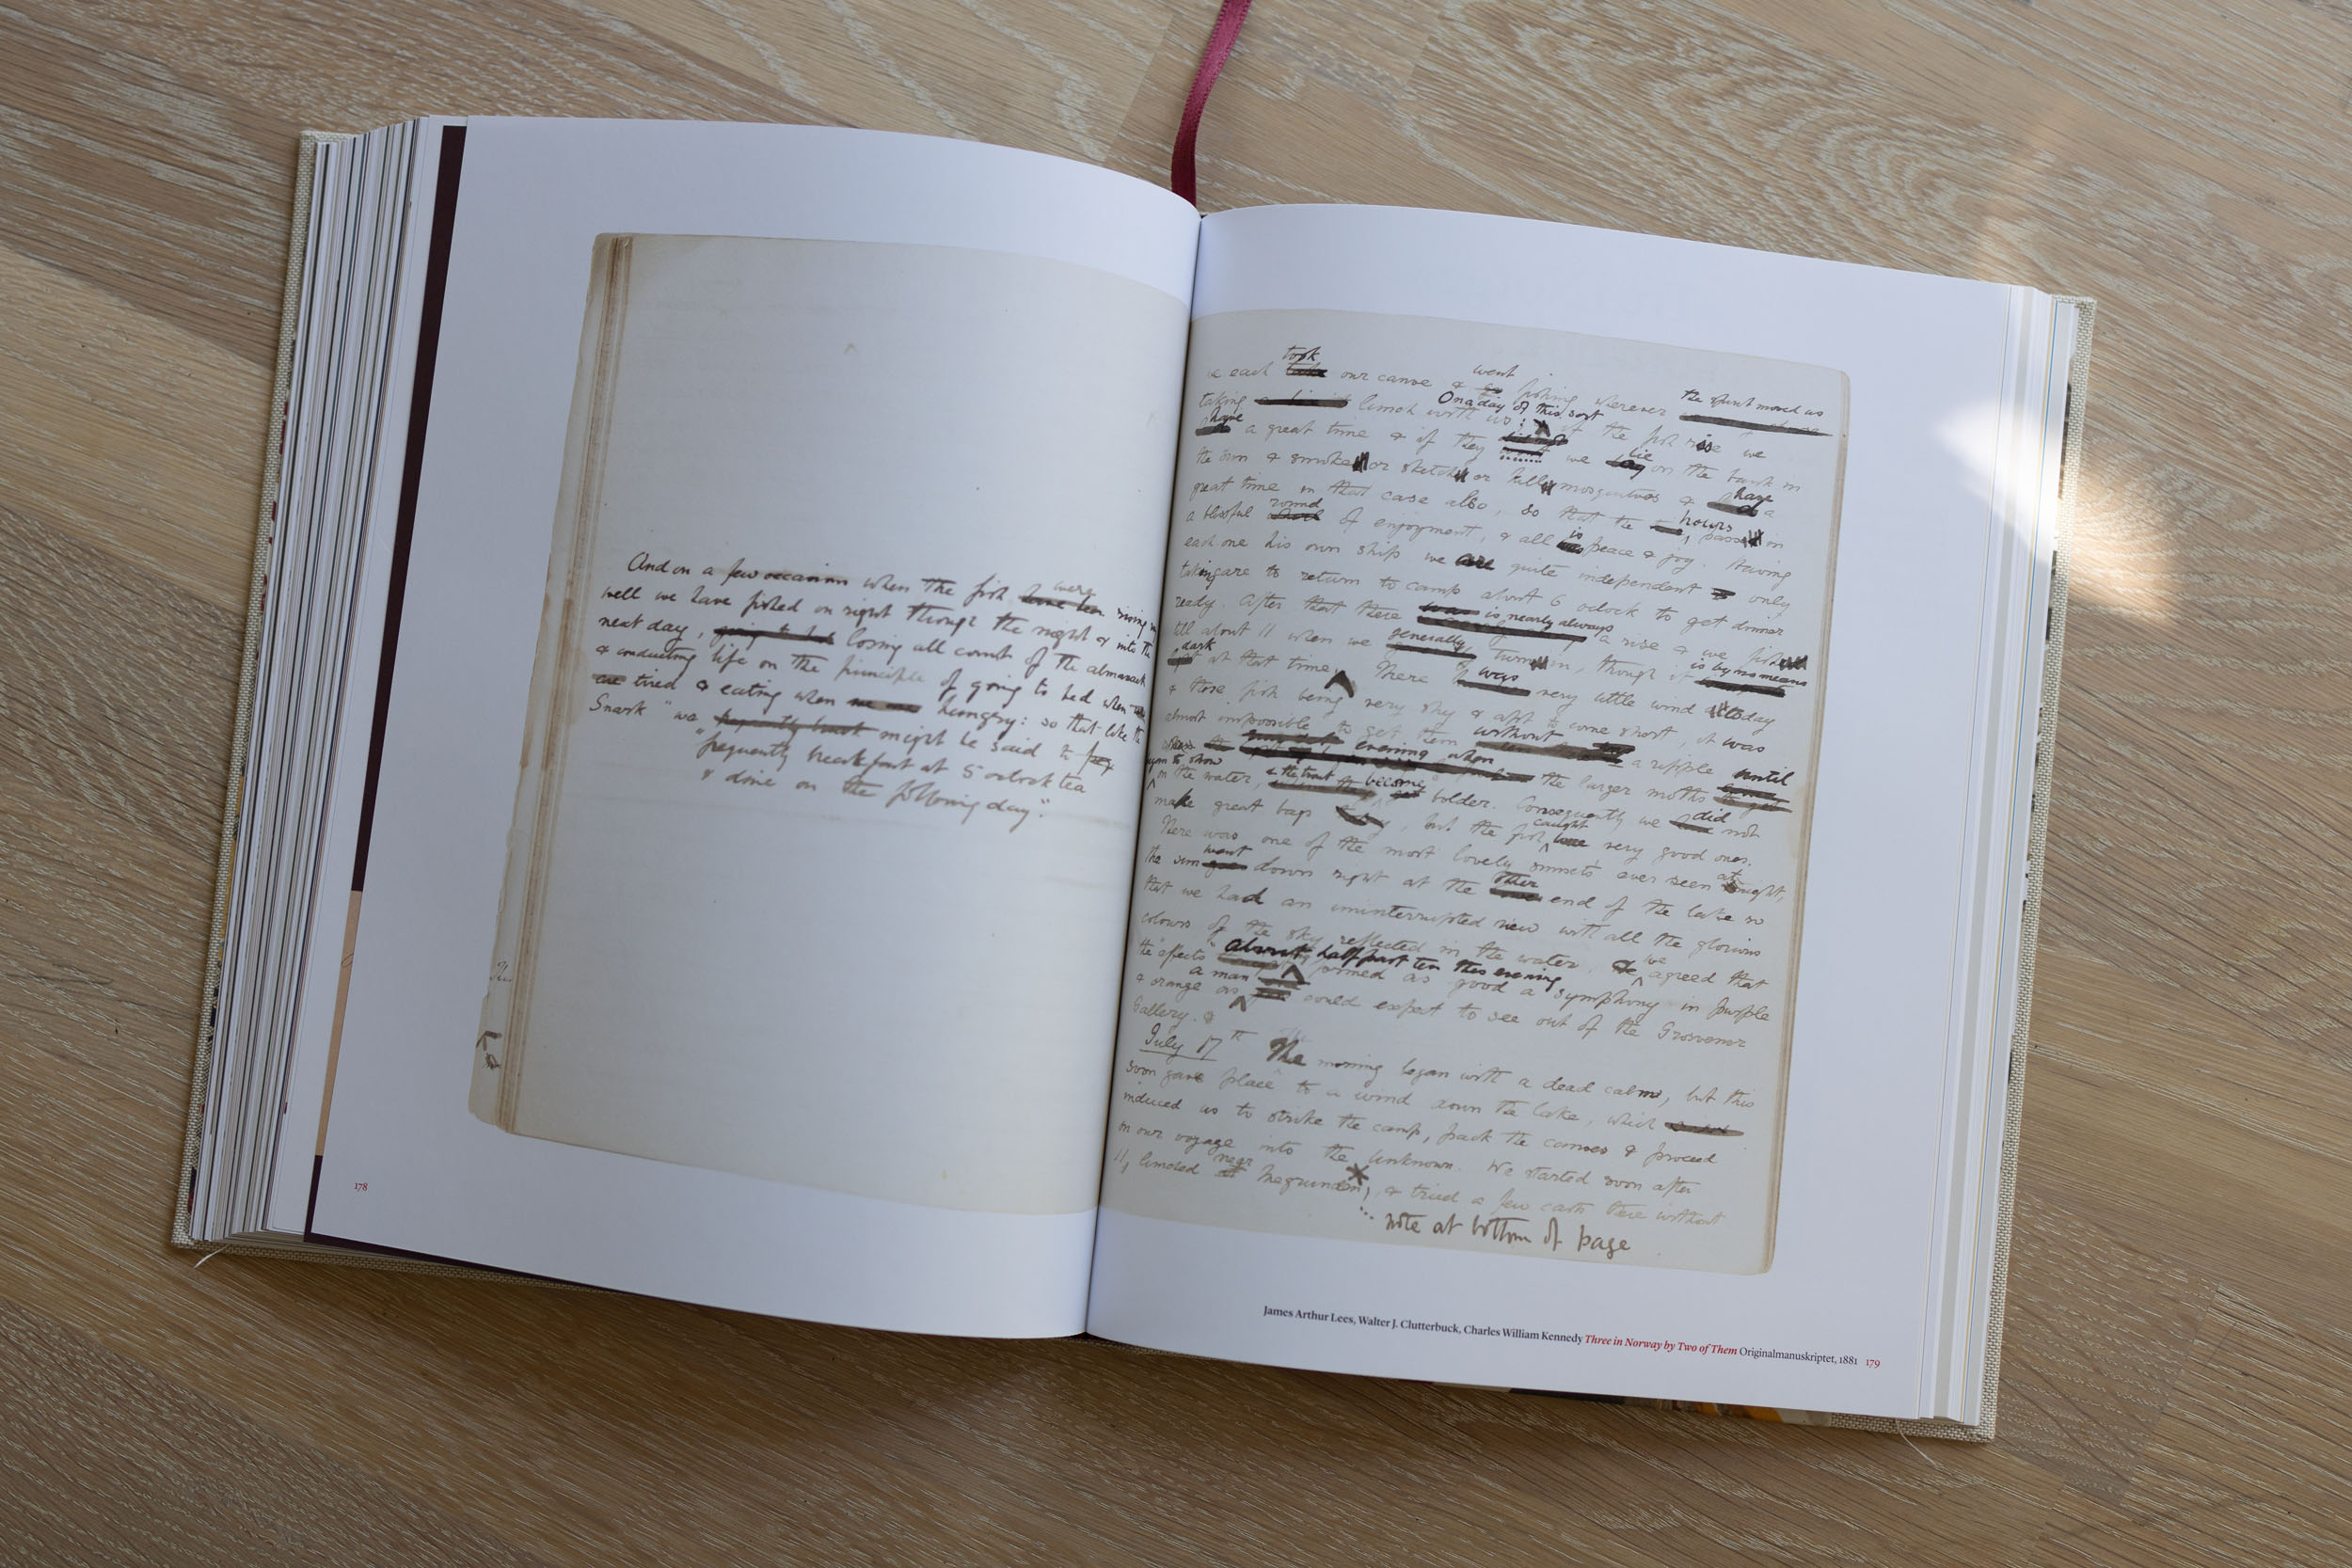 And on a few occasions when the fish were rising
well we have fished on right through the night & into the
next day, losing all count of the almanack
& conducting life on the principle of going to bed when
tired & eating when hungry: so that like the
Snark "we might be said to
"frequently breakfast at 5 oclock tea
& dine on the following day".
178
took went the spirit moved us
each our canoe & fishing wherever
On a day of this sort
taking lunch with us; if the fish rise we
have a great time & if they we lie on the bank in
the sun & smoke or sketch or kill mosquitoes & have a
great time in that case also, so that the hours pass in
a blissful round of enjoyment, & all is peace & joy. Having
each one his own ship we are quite independent only
taking care to return to camp about 6 oclock to get dinner
ready. After that there is nearly always a rise & we fish
till about 11 when we generally turn in, though it is by no means
dark at that time. There was very little wind today
& these fish being very shy & apt to come short, it was
almost impossible to get them without a ripple until
evening when the larger moths
on the water, & the trout become bolder. Consequently we did not
make great bags, but the fish caught were very good ones.
There was one of the most lovely sunsets ever seen at night,
the sun went down right at the other end of the lake so
that we had an uninterrupted view with all the glorious
colours of the sky reflected in the water. We agreed that
the "effects" about half past ten this evening formed as good a symphony in purple
& orange as a man could expect to see out of the Grosvenor
Gallery.
July 17th The morning began with a dead calm, but this
soon gave place to a wind down the lake, which
induced us to strike the camp, pack the canoes & proceed
on our voyage into the unknown. We started soon after
11, lunched near & tried a few casts there without
note at bottom of page
James Arthur Lees, Walter J. Clutterbuck, Charles William Kennedy Three in Norway by Two of Them Originalmanuskriptet, 1881 179